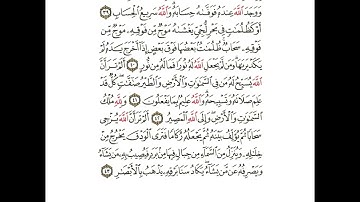 وَوَجَدَ ٱللَّهَ عِندَهُۥ فَوَفَّىٰهُ حِسَابَهُۥ وَٱللَّهُ سَرِيعُ ٱلْحِسَابِ ٣٩
أَوْ كَظُلُمَٰتٍ فِى بَحْرٍ لُّجِّىٍّ يَغْشَىٰهُ مَوْجٌ مِّن فَوْقِهِۦ مَوْجٌ مِّن
فَوْقِهِۦ سَحَابٌ ظُلُمَٰتٌۢ بَعْضُهَا فَوْقَ بَعْضٍ إِذَآ أَخْرَجَ يَدَهُۥ لَمْ
يَكَدْ يَرَىٰهَا وَمَن لَّمْ يَجْعَلِ ٱللَّهُ لَهُۥ نُورًا فَمَا لَهُۥ مِن نُّورٍ ٤٠ أَلَمْ تَرَ أَنَّ
ٱللَّهَ يُسَبِّحُ لَهُۥ مَن فِى ٱلسَّمَٰوَٰتِ وَٱلْأَرْضِ وَٱلطَّيْرُ صَٰٓفَّٰتٍ كُلٌّ قَدْ
عَلِمَ صَلَاتَهُۥ وَتَسْبِيحَهُۥ وَٱللَّهُ عَلِيمٌۢ بِمَا يَفْعَلُونَ ٤١ وَلِلَّهِ مُلْكُ
ٱلسَّمَٰوَٰتِ وَٱلْأَرْضِ وَإِلَى ٱللَّهِ ٱلْمَصِيرُ ٤٢ أَلَمْ تَرَ أَنَّ ٱللَّهَ يُزْجِى
سَحَابًا ثُمَّ يُؤَلِّفُ بَيْنَهُۥ ثُمَّ يَجْعَلُهُۥ رُكَامًا فَتَرَى ٱلْوَدْقَ يَخْرُجُ مِنْ
خِلَٰلِهِۦ وَيُنَزِّلُ مِنَ ٱلسَّمَآءِ مِن جِبَالٍ فِيهَا مِنۢ بَرَدٍ فَيُصِيبُ بِهِۦ مَن يَشَآءُ
وَيَصْرِفُهُۥ عَن مَّن يَشَآءُ يَكَادُ سَنَا بَرْقِهِۦ يَذْهَبُ بِٱلْأَبْصَٰرِ ٤٣